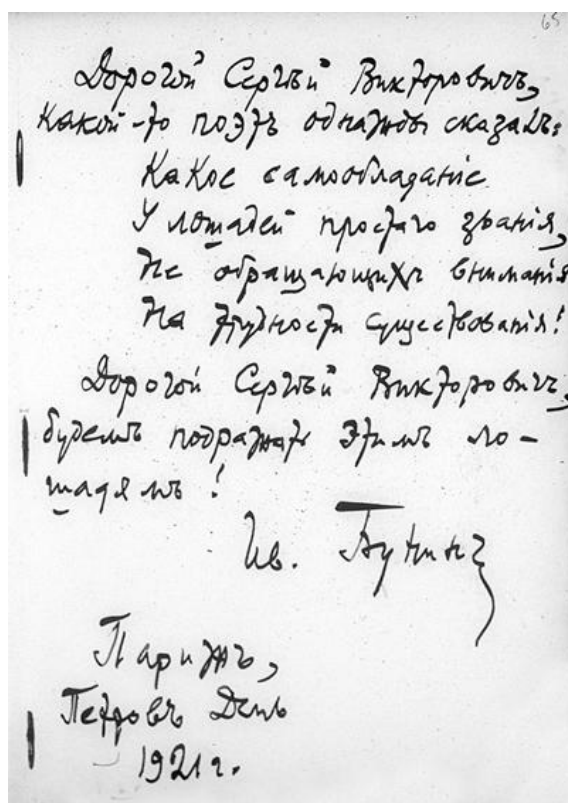 65
Дорогой Сергѣй Викторовичъ,
Какой-то поэтъ однажды сказалъ:
Какое самообладаніе
У лошадей простаго званія,
Не обращающихъ вниманія
На трудности существованія!
Дорогой Сергѣй Викторовичъ,
будемъ подражать этимъ ло-
шадямъ!
Ив. Бунинъ
Парижъ,
Петровъ День
1921 г.